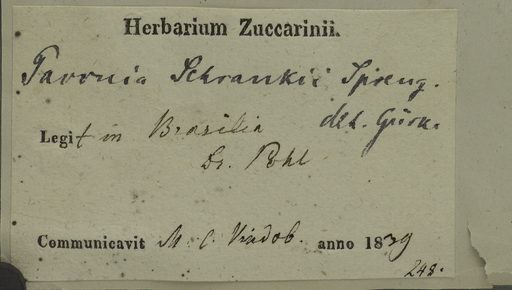 Herbarium Zuccarinii.
Pavonia Schrankii Spreng.
det. Gürke.
Legit in Brasilia
Dr. Pohl
Communicavit M. C. Vindob. anno 1839
248.